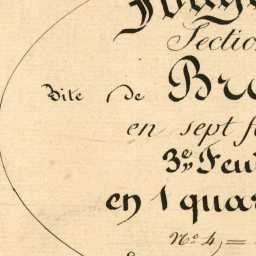 Sectio
Dite de Br
en sept f
3e Feu
en 1 quar
No 4, =